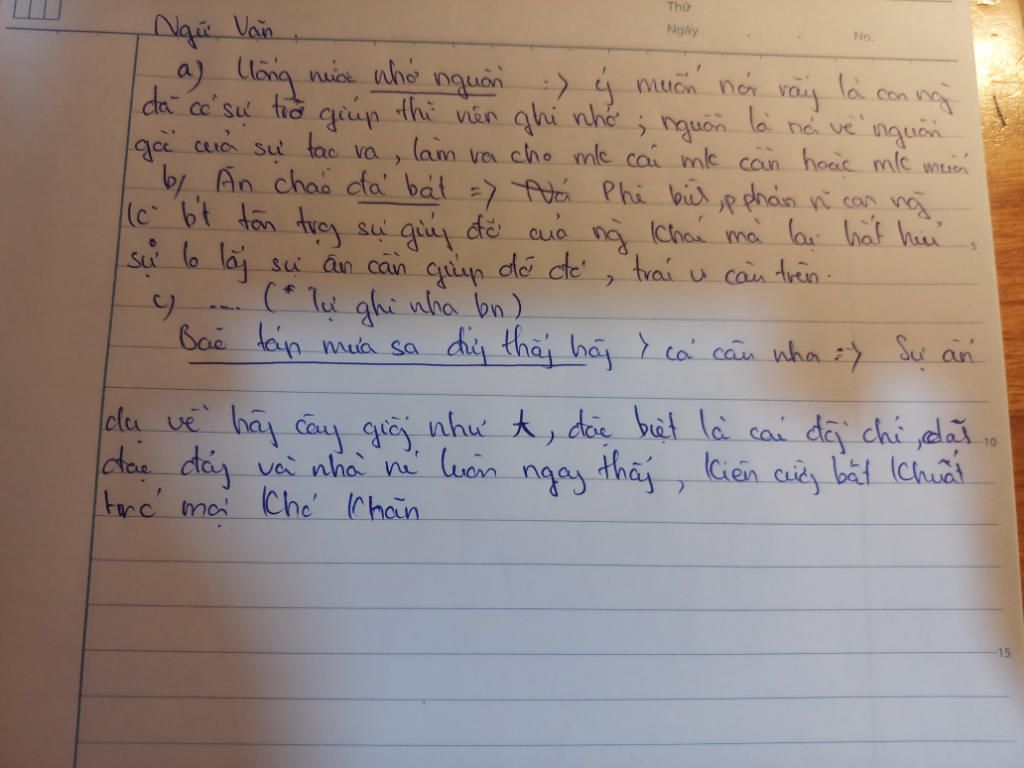 Thứ
Ngày . . No.
Ngữ Văn.
a) Uống nước nhớ nguồn => ý muốn nói rằng là con ng
đã có sự trợ giúp thì nên ghi nhớ; nguồn là nói về nguồn
gốc của sự tạo ra, làm ra cho mk cái mk cần hoặc mk muốn
b) Ăn cháo đá bát => Phê bình, p phán con ng
k bt tôn trọng sự giúp đỡ của ng khác mà lại hắt hủi
sự lo lắg sự ân cần giúp đỡ đó, trái câu trên.
c) .... (* Tự ghi nha bn)
Bão táp mưa sa đứg thẳg hàg > cả câu nha => Sự ẩn
dụ về hàg cây giốg như, đặc biệt là cái
và luôn ngay thẳg, kiên cườg bất khuất
trước mọi khó khăn
5
10
15